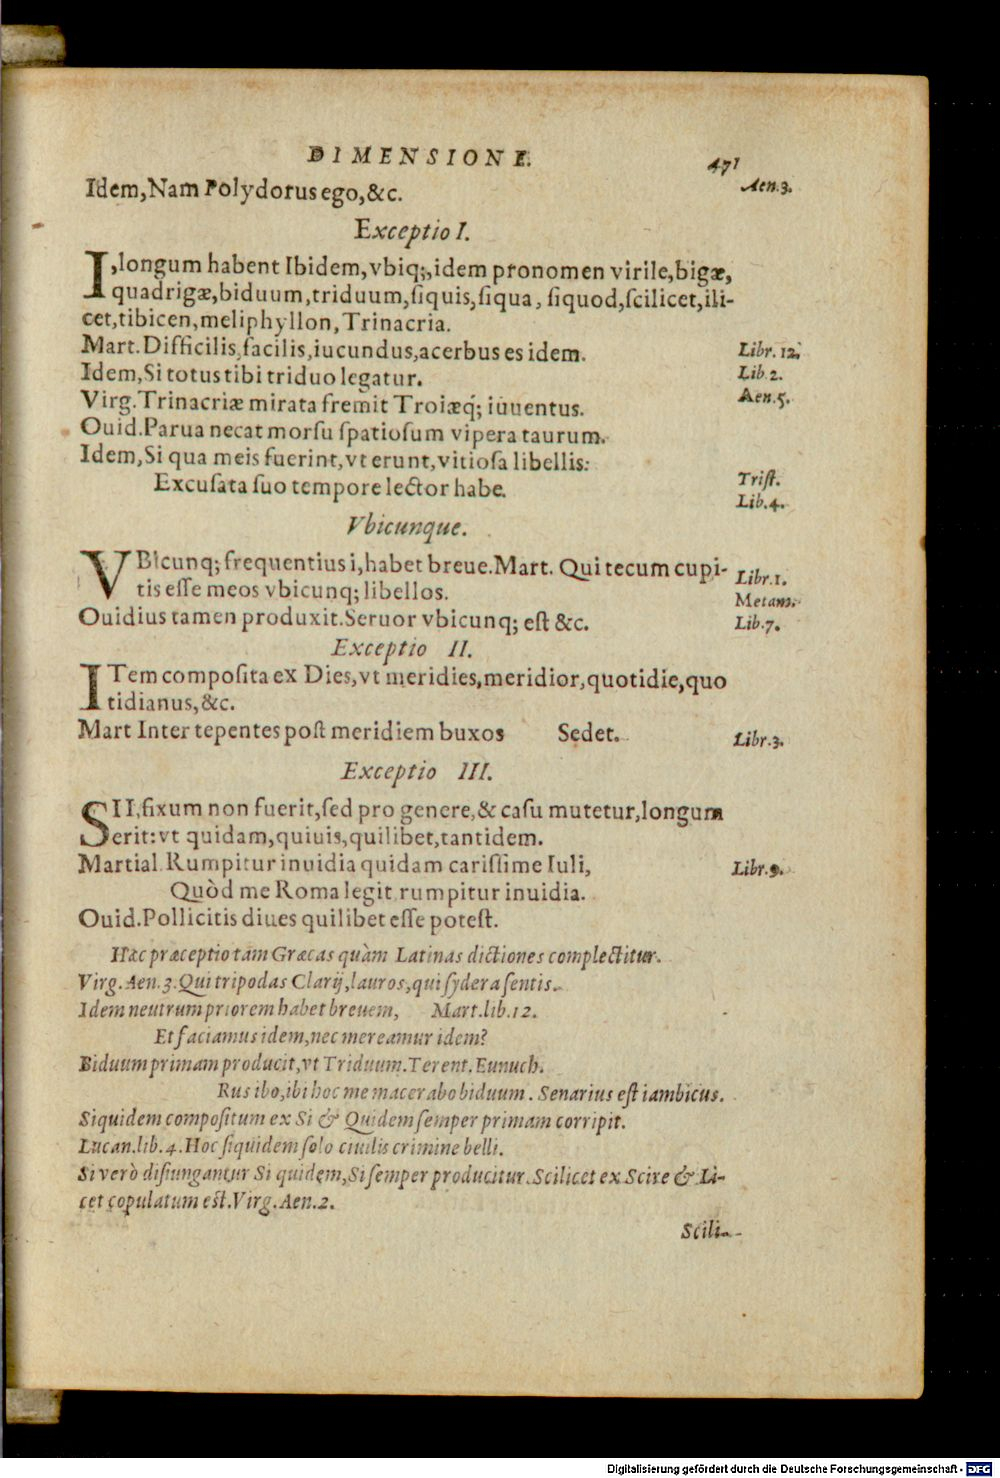 DIMENSIONE. 471
Idem,Nam Polydorus ego,&c. Aen.3.
Exceptio I.
I,longum habent Ibidem,vbiq;,idem pronomen virile,bigæ,
quadrigæ,biduum,triduum,ſiquis,ſiqua, ſiquod,ſcilicet,ili-
cet,tibicen,meliphyllon,Trinacria.
Mart.Difficilis,facilis,iucundus,acerbus es idem. Libr. 12.
Idem,Si totus tibi triduo legatur. Lib.2.
Virg.Trinacriæ mirata fremit Troiæq́; iuuentus. Aen.5.
Ouid.Parua necat morſu ſpatioſum vipera taurum.
Idem,Si qua meis fuerint,vt erunt,vitioſa libellis: Triſt.
Excuſata ſuo tempore lector habe. Lib.4.
Vbicunque.
VBIcunq; frequentius i,habet breue.Mart. Qui tecum cupi- Libr.1.
tis eſſe meos vbicunq; libellos. Metam.
Ouidius tamen produxit.Seruor vbicunq; eſt &c. Lib.7.
Exceptio II.
ITem compoſita ex Dies,vt meridies,meridior,quotidie,quo
tidianus,&c.
Mart Inter tepentes poſt meridiem buxos Sedet. Libr.3.
Exceptio III.
SI I,fixum non fuerit,ſed pro genere,& caſu mutetur,longum
erit:vt quidam,quiuis,quilibet,tantidem.
Martial.Rumpitur inuidia quidam cariſſime Iuli, Libr.9.
Quòd me Roma legit rumpitur inuidia.
Ouid.Pollicitis diues quilibet eſſe poteſt.
Hæc præceptio tam Græcas quàm Latinas dictiones complectitur.
Virg.Aen.3.Qui tripodas Clarij,lauros,qui ſydera ſentis.
Idem neutrum priorem habet breuem, Mart.lib.12.
Et faciamus idem,nec mereamur idem?
Biduum primam producit,vt Triduum.Terent.Eunuch.
Rus ibo,ibi hoc me macerabo biduum. Senarius eſt iambicus.
Siquidem compoſitum ex Si & Quidem ſemper primam corripit.
Lucan.lib.4.Hoc ſiquidem ſolo ciuilis crimine belli.
Si verò diſiungantur Si quidem,Si ſemper producitur.Scilicet ex Scire & Li-
cet copulatum eſt.Virg.Aen.2.
Scili-
Digitalisierung gefördert durch die Deutsche Forschungsgemeinschaft - DFG